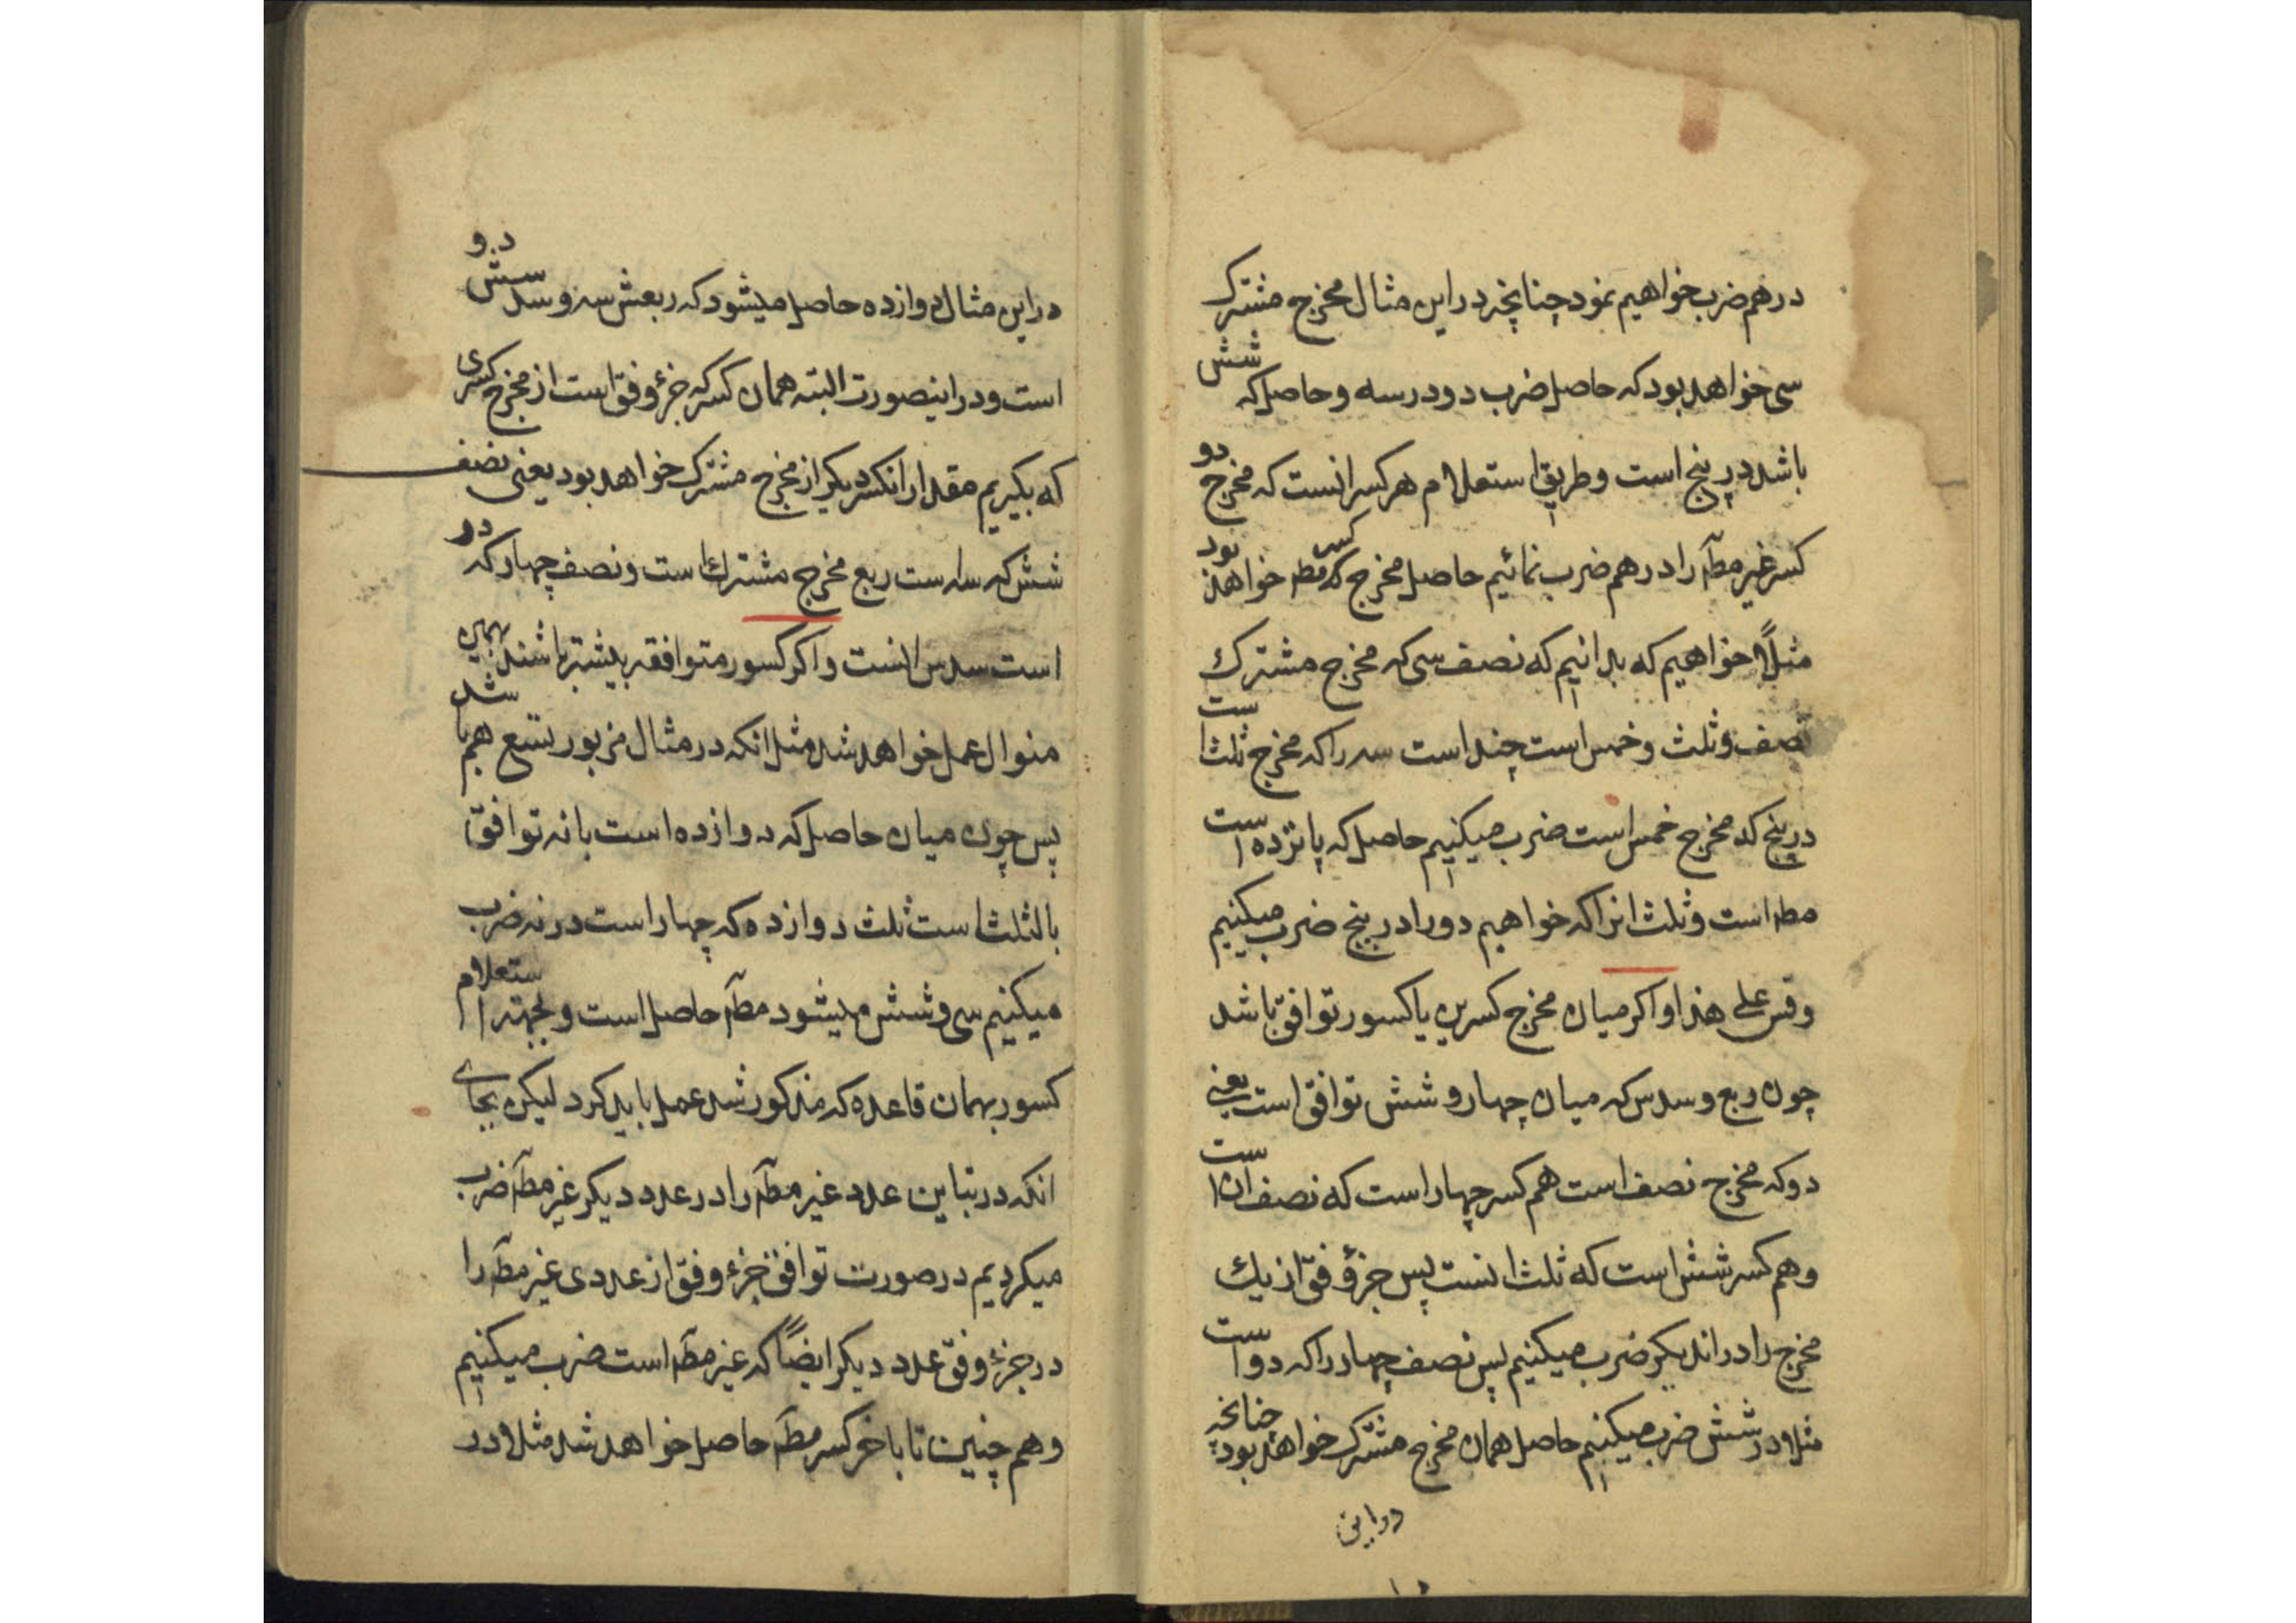 درهم ضرب خواهیم نمود چنانچه در این مثال مخرج مشترک
سی خواهد بود که حاصل ضرب دو در سه و حاصل که شش
باشد در پنج است و طریق استعلام هر کسر انست که مخرج دو
کسر غیر مطـ را در هم ضرب نمائیم حاصل مخرج کسر مطـ خواهد بود
مثلاً خواهیم که بدانیم که نصف سی که مخرج مشترك
نصف و ثلث و خمس است چند است سه را که مخرج ثلث است
در پنج که مخرج خمس است ضرب میکنیم حاصل که پانزده است
مطـ است و ثلث انرا که خواهیم دو را در پنج ضرب میکنیم
وقس علی هذا و اکر میان مخرج کسرین یا کسور توافق باشد
چون ربع و سدس که میان چهار و شش توافق است یعنی
دو که مخرج نصف است هم کسر چهار است که نصف ان است
و هم کسر شش است که ثلث انست پس جزؤ وفق از یك
مخرج را در اندیکر ضرب میکنیم پس نصف چهار را که دو است
مثلا در شش ضرب میکنیم حاصل همان مخرج مشترک خواهد بود چنانچه
در این
در این مثال دوازده حاصل میشود که ربعش سه و سدسش دو
است و در اینصورت البته همان کسر که جزؤ وفق است از مخرج کسری
که بکیریم مقدار انکسر دیکر از مخرج مشترک خواهد بود یعنی نصف
شش که سه است ربع مخرج مشترك است و نصف چهار که دو
است سدس انست و اکر کسور متوافقه بیشتر باشند بهمین
منوال عمل خواهد شد مثل انکه در مثال مزبور تسع هم باشد
پس چون میان حاصل که دوازده است با نه توافق
بالثلث است ثلث دوازده که چهار است در نه ضرب
میکنیم سی و شش میشود مطـ حاصل است و بجهته استعلام
کسور بهمان قاعده که مذکور شد عمل باید کرد لیکن بجای
انکه در تباین عدد غیر مطـ را در عدد دیکر غیر مطـ ضرب
میکردیم در صورت توافق جزء وفق از عددی غیر مطـ را
در جزء وفق عدد دیکر ایضاً که غیر مطـ است ضرب میکنیم
و هم چنین تا باخر کسر مطـ حاصل خواهد شد مثلا در